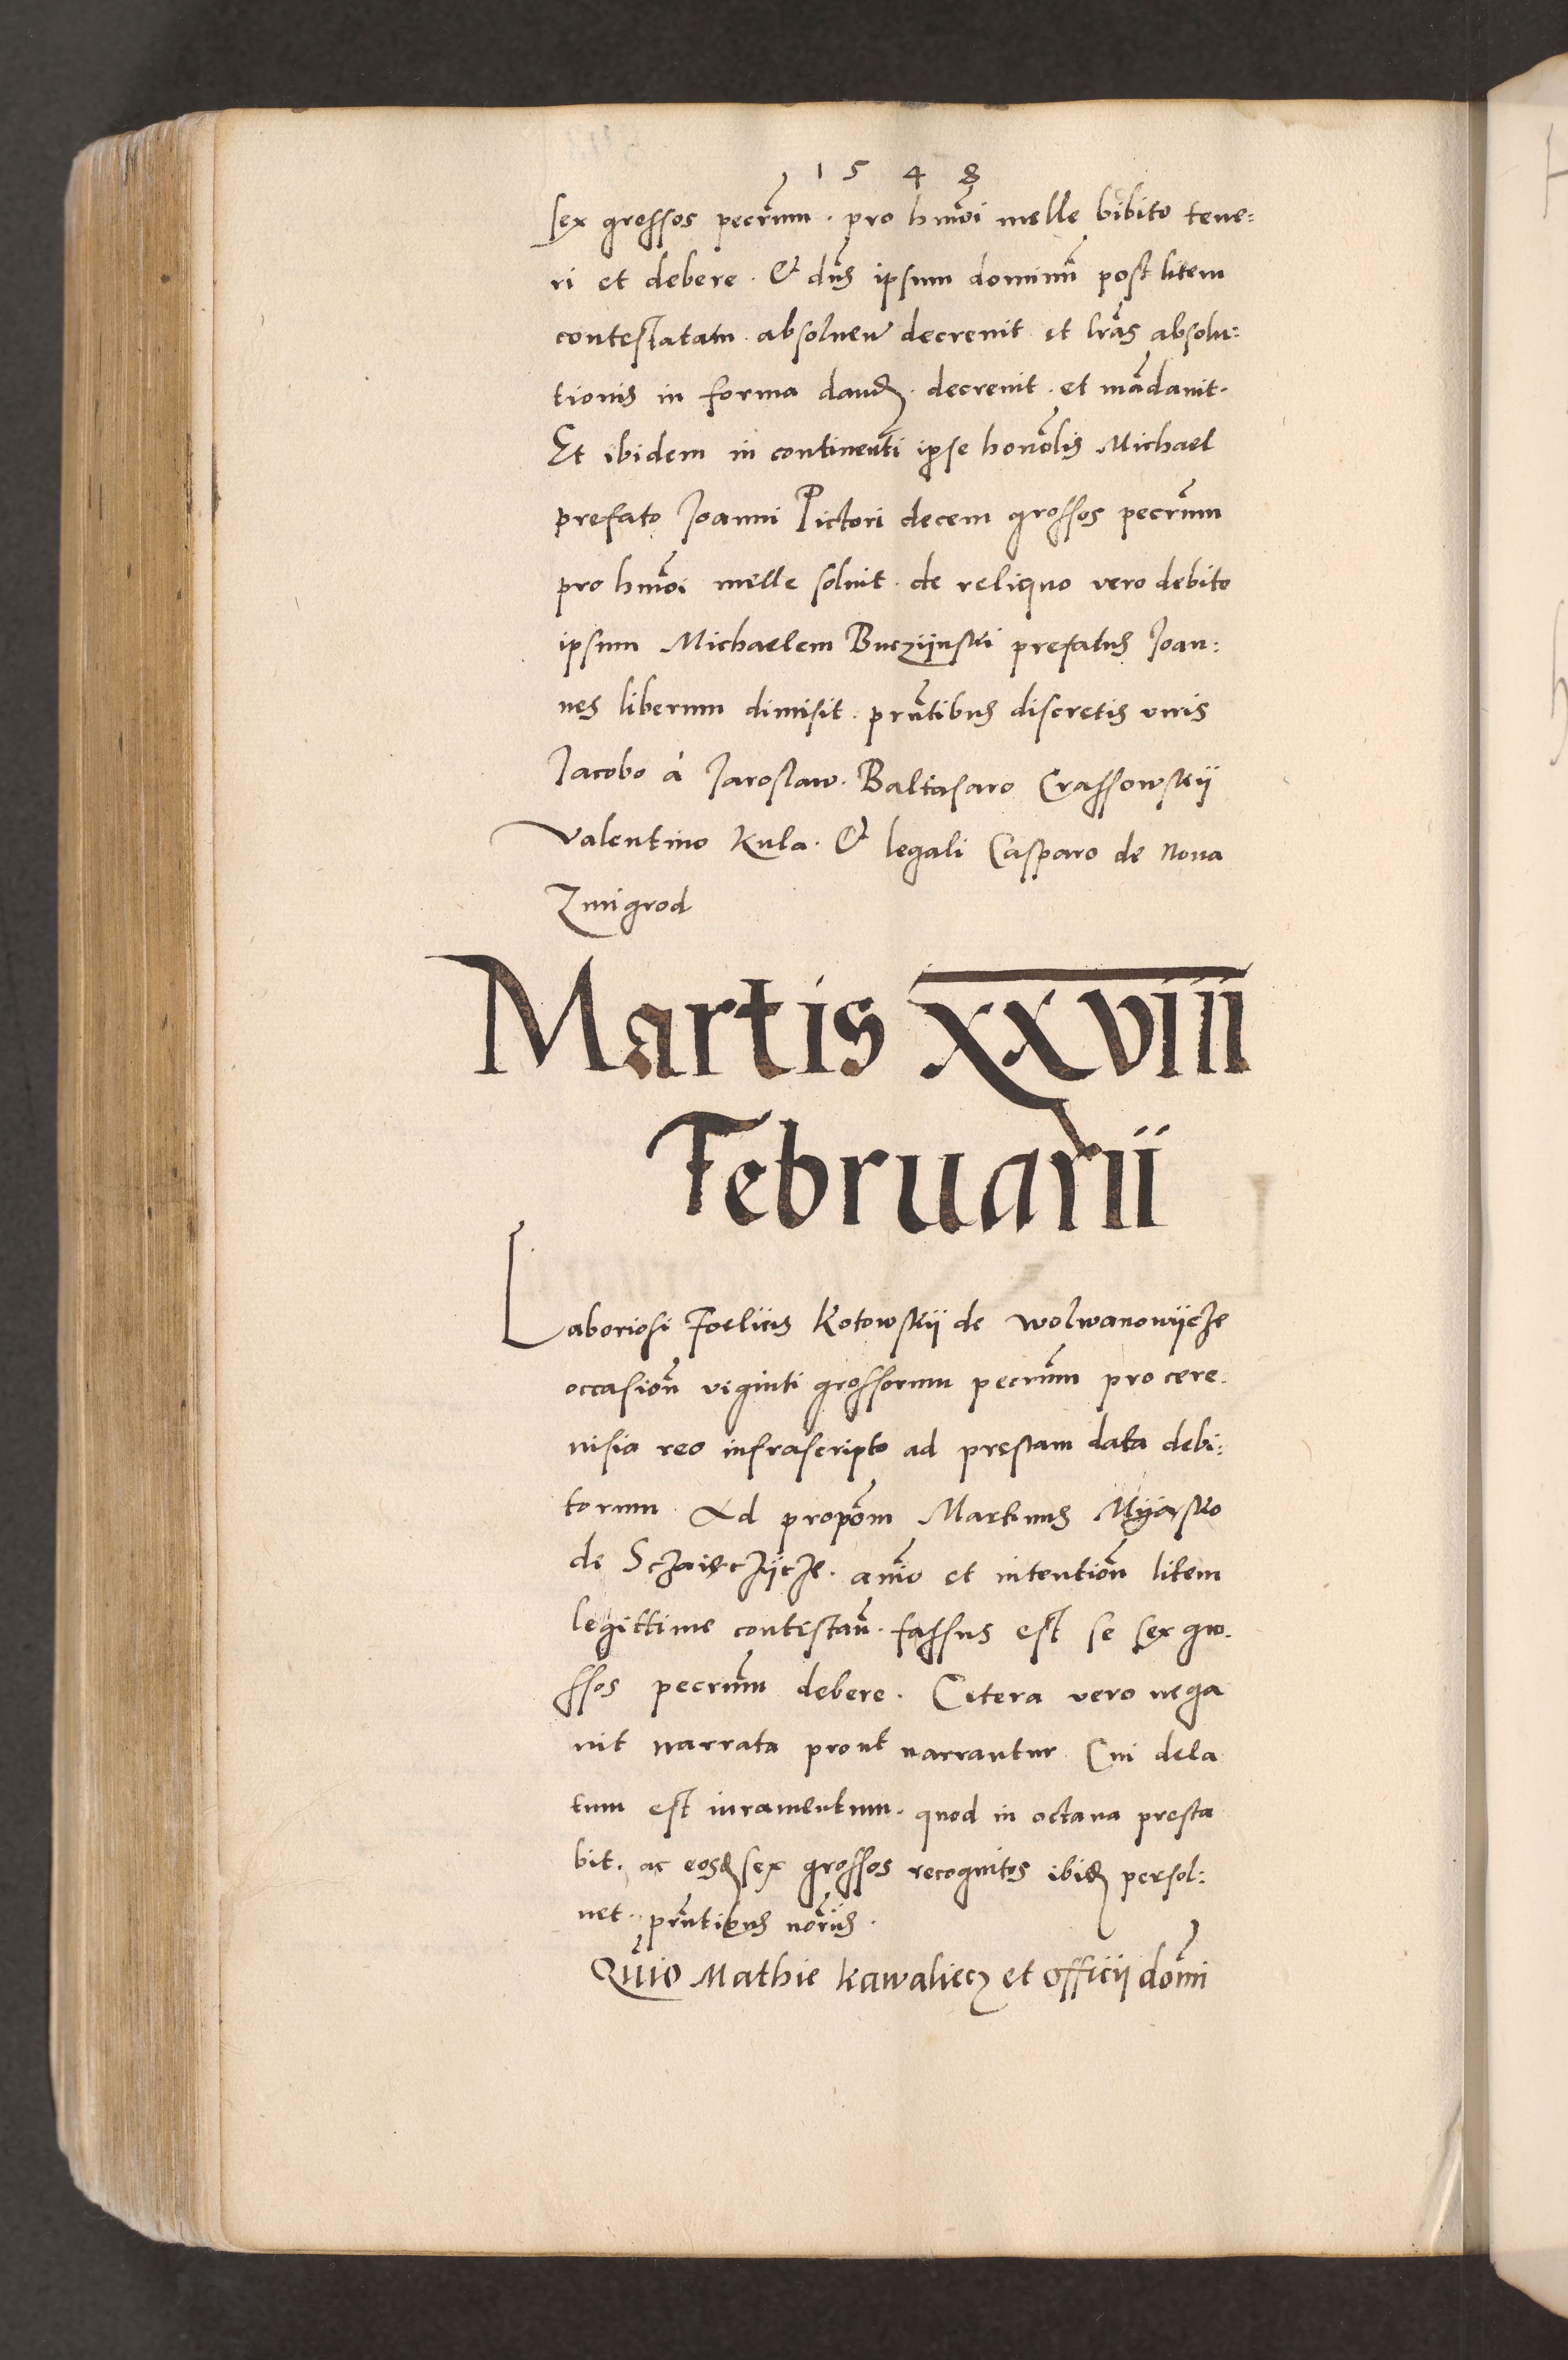 1548
sex grossos pecrum̃. pro hmõi melle bibito tene:
ri et debere. & dñs ipsum dominũ post litem
contestatam absoluen decreuit et lrãs absolu:
tionis in forma dand. decreuit. et mãdauit.
Et ibidem in continenti ipse honoĩlis Michael
prefato Joanni Pictori decem grossos pecrum̃
pro hmõi melle soluit. de reliquo vero debito
ipsum Michaelem Buczijnski prefatus Joan:
nes liberum dimisit. prñtibus discretis viris
Jacobo á Jaroslaw. Baltasaro Crassowskij
Valentino Kula. & legali Casparo de Noua
Zmigrod
Martis XXVIII
Februarii
Laboriosi Foelicis Kotowskij de Wolwanowijcze
occasioñ viginti grossorum pecrum̃ pro cere
uisia reo infrascripto ad prestam data debi:
torum Ad propõm Martinus Myasko
de animo et intentioñ litem
legittime contestañ. fassus est se sex gro
ssos pecrum̃ debere. Cetera vero nega
uit narrata prout narrantur. Cui dela
tum est iuramentum. quod in octaua presta
bit. ac eosd sex grossos recognitos ibid persol:
uet. prñtibus norĩjs.
Quĩo Mathie Kawaliecz et officij domĩ